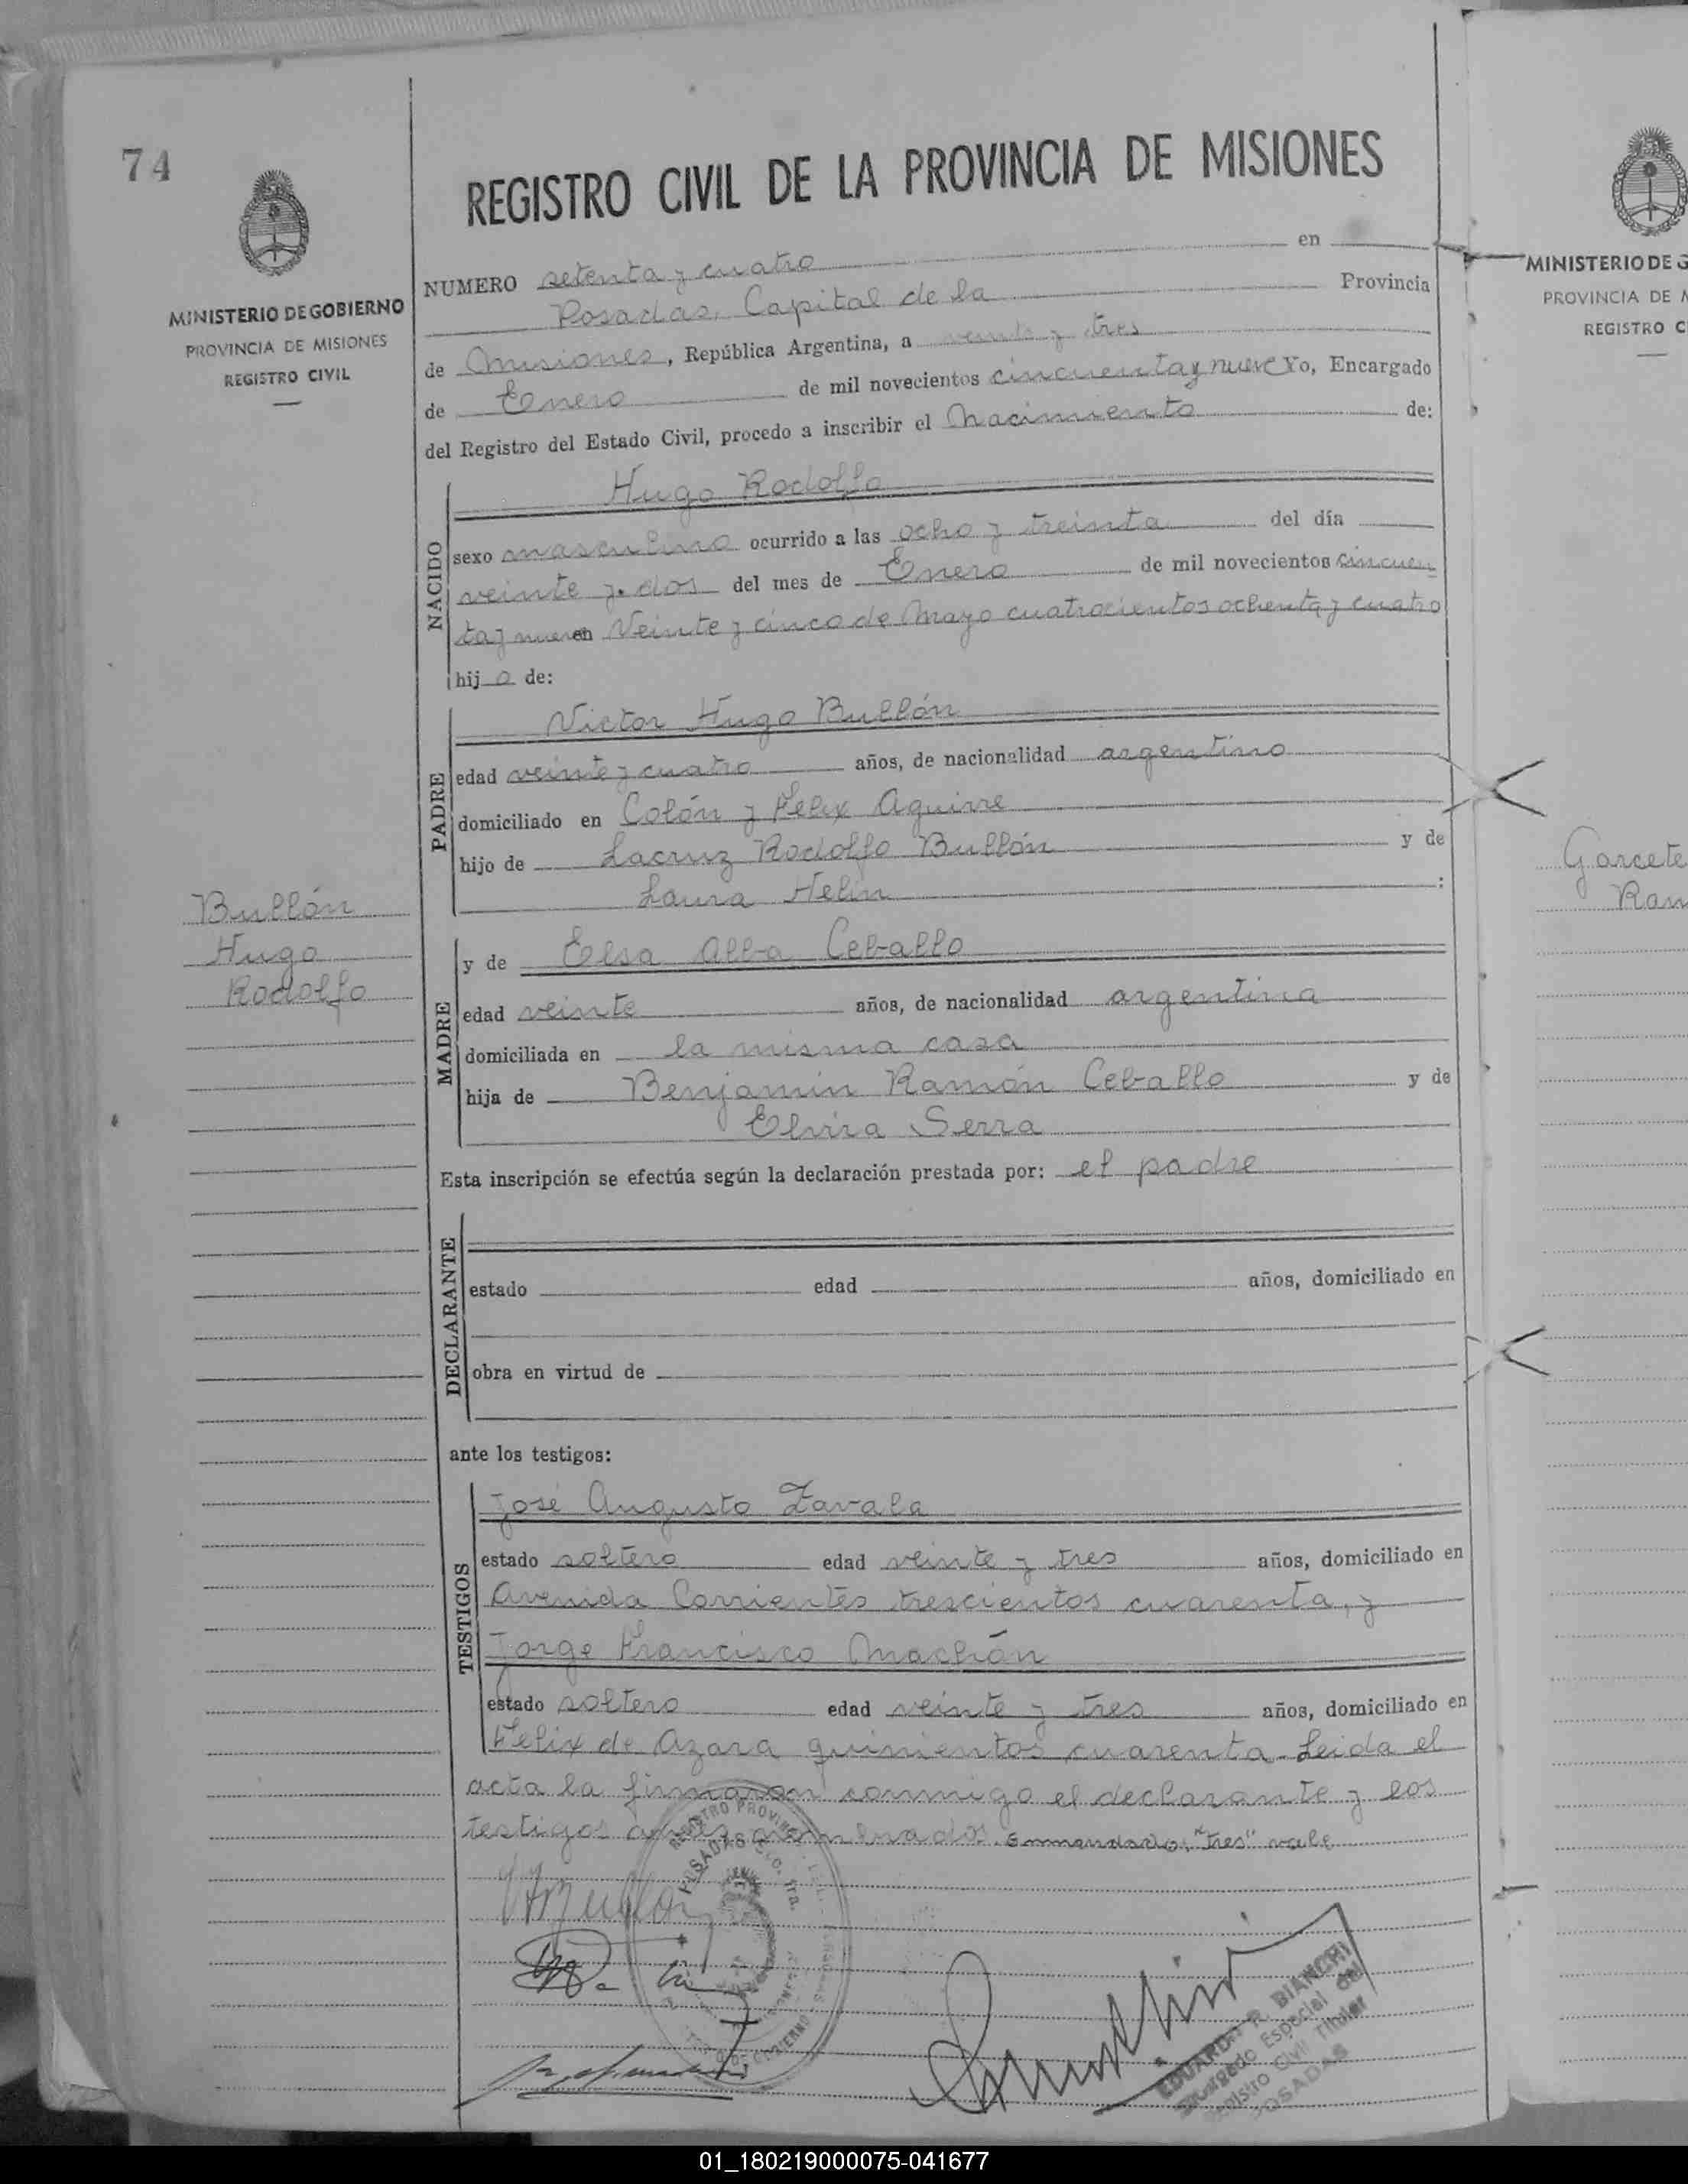 74
REGISTRO CIVIL DE LA PROVINCIA DE MISIONES
MINISTERIO DE GOBIERNO
PROVINCIA DE MISIONES
REGISTRO CIVIL
NUMERO setenta y cuatro en
Posadas, Capital de la Provincia
de Misiones, República Argentina, a veinte y tres
de Enero de mil novecientos cincuenta y nueve Yo, Encargado
del Registro del Estado Civil, procedo a inscribir el Nacimiento de:
NACIDO
Hugo Rodolfo
sexo masculino ocurrido a las ocho y treinta del día
veinte y dos del mes de Enero de mil novecientos cincuen
ta y nueve en Veinte y cinco de Mayo cuatrocientos ochenta y cuatro
hijo de:
PADRE
Victor Hugo Bullón
edad veinte y cuatro años, de nacionalidad argentino
domiciliado en Colón y Felix Aguirre
hijo de Lacruz Rodolfo Bullón y de
Laura Helin :
Bullón
Hugo
Rodolfo
MADRE
y de Elsa Alba Ceballo
edad veinte años, de nacionalidad argentina
domiciliada en la misma casa
hija de Benjamín Ramón Ceballo y de
Elvira Serra
Esta inscripción se efectúa según la declaración prestada por: el padre
DECLARANTE
estado edad años, domiciliado en
obra en virtud de
ante los testigos:
TESTIGOS
José Augusto Zavala
estado soltero edad veinte y tres años, domiciliado en
Avenida Corrientes trescientos cuarenta, y
Jorge Francisco Machón
estado soltero edad veinte y tres años, domiciliado en
Felix de Azara quinientos cuarenta. Leida el
acta la firmaron conmigo el declarante y los
testigos antes nombrados. Enmendado: "tres" vale
EDUARDO R. BIANCHI
Encargado Especial del
Registro Civil Titular
POSADAS
MINISTERIO DE G
PROVINCIA DE M
REGISTRO C
Garcete
Ram
01_180219000075-041677